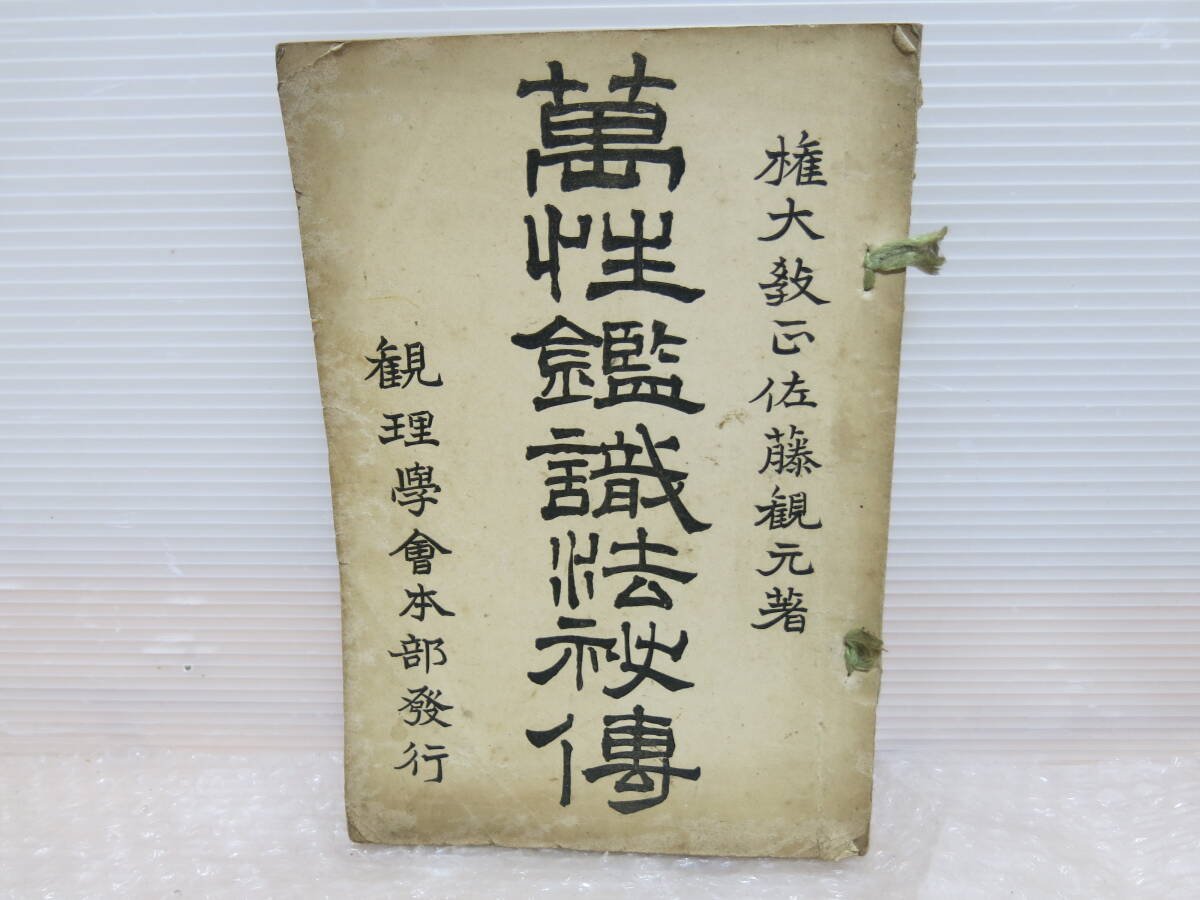 権大教正佐藤観元著
萬性鑑識法祕傳
観理學會本部發行